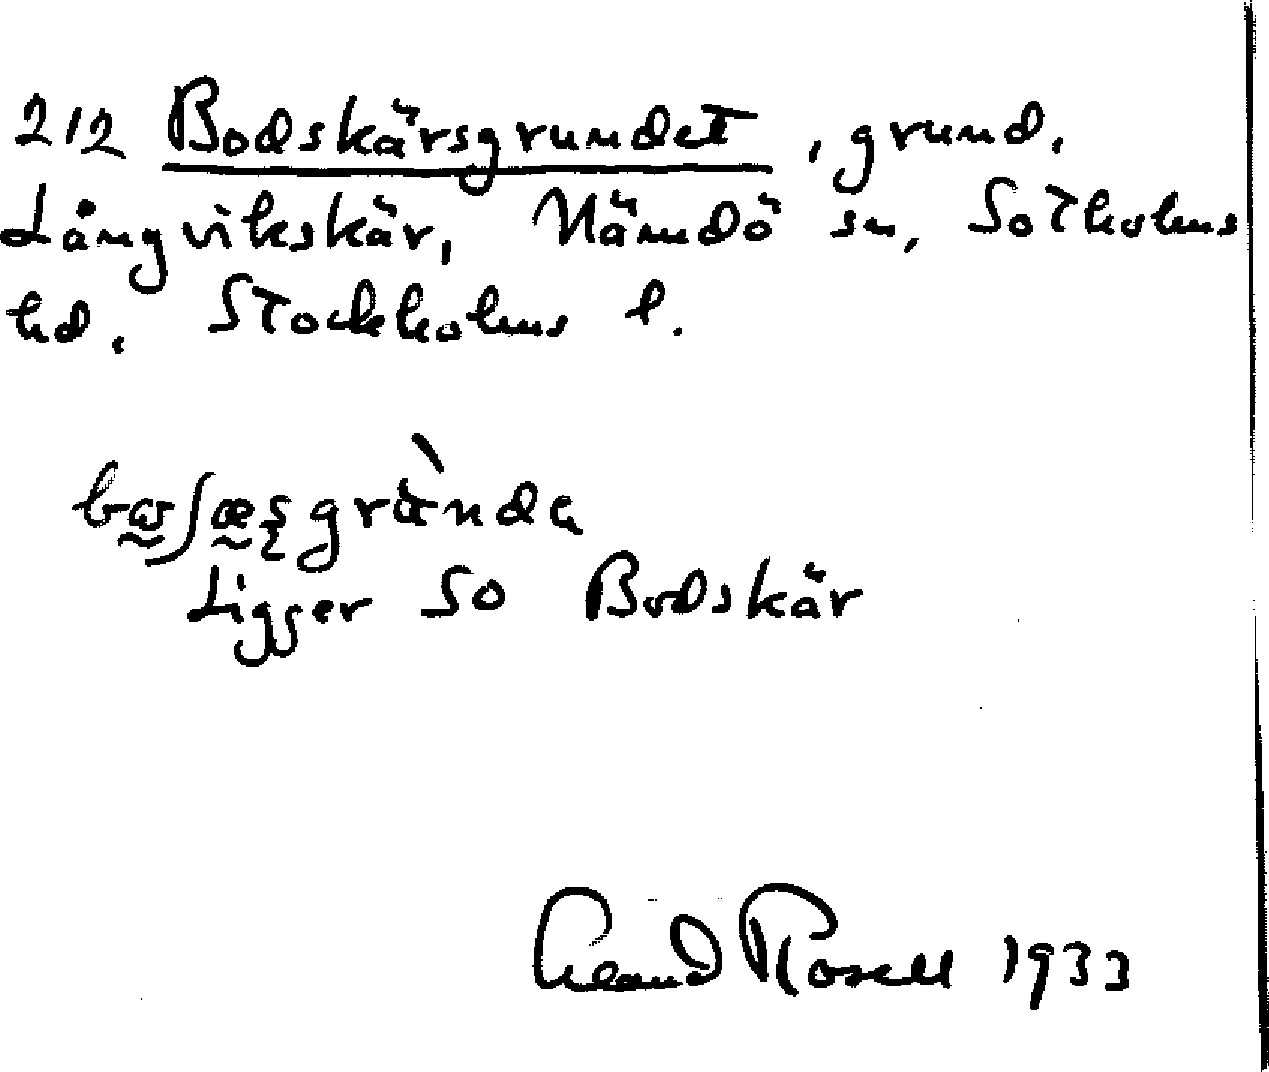 212 Bodskärsgrundet, grund.
Långvikskär, Nämdö sn, Sotholms
hd. Stockholms l.
Ligger SO Bodskär
Rosell 1933